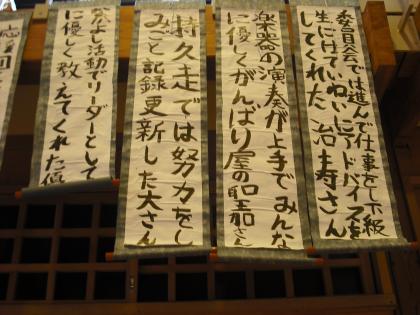 委員会では進んで仕事をし下級
生にはていねいにアドバイスを
してくれた冶寿さん
楽器の演奏が上手でみんな
に優しくがんばり屋の聖さん
持久走では努力をし
みごと記録更新した大さん
なかよし活動でリーダーとして
に優しく教えてくれた